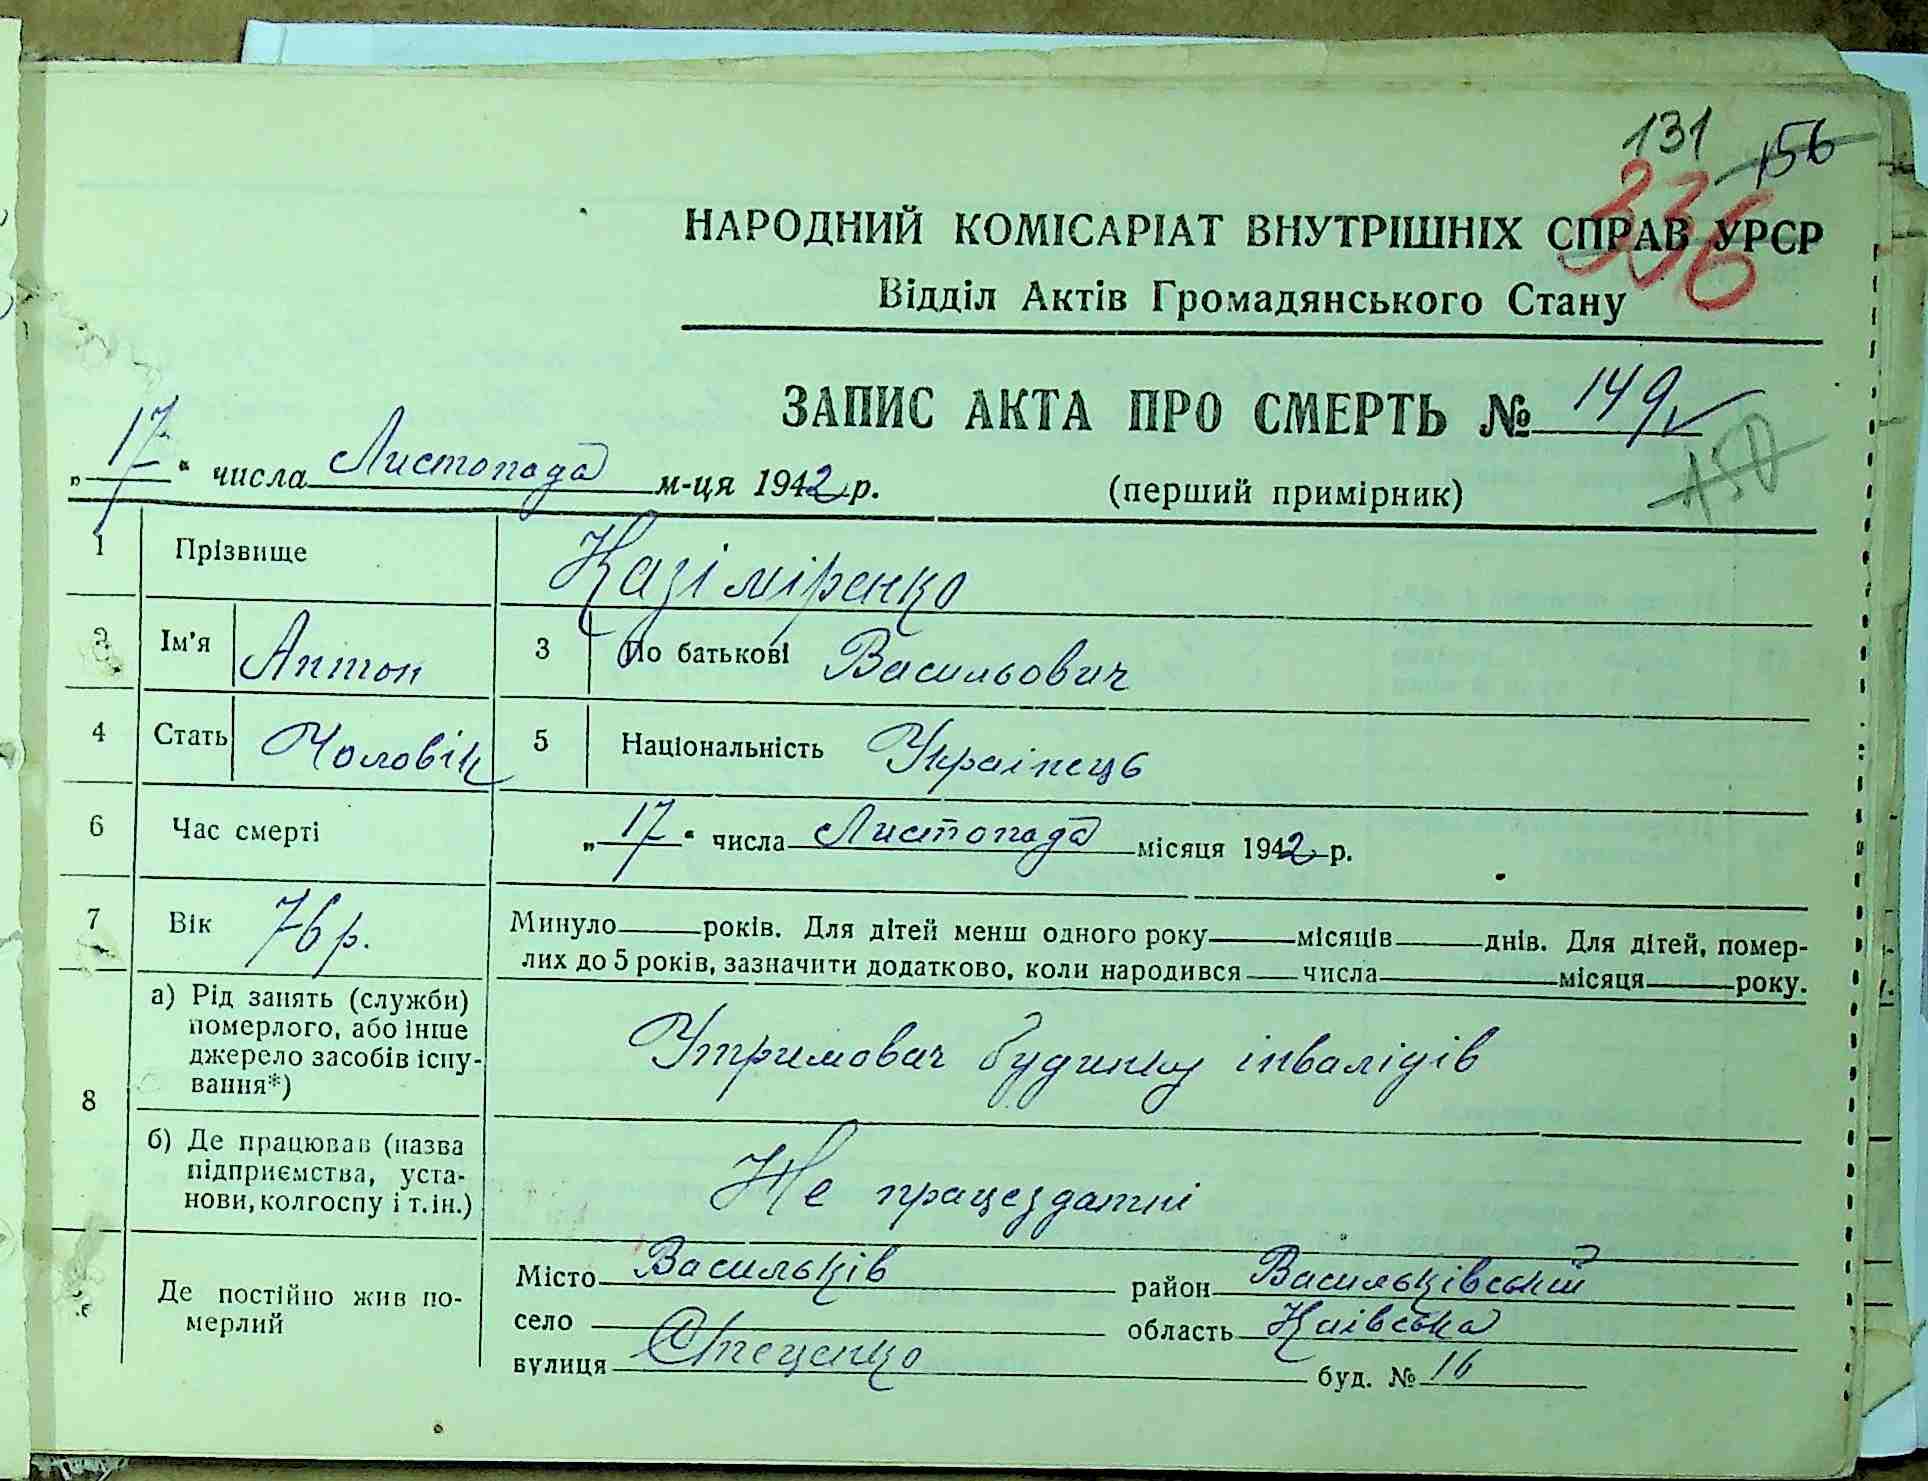 131 156
336
НАРОДНИЙ КОМІСАРІАТ ВНУТРІШНІХ СПРАВ УРСР
Відділ Актів Громадянського Стану
ЗАПИС АКТА ПРО СМЕРТЬ № 149
150
„17“ числа Листопада м-ця 1942 р. (перший примірник)
1 Прізвище Казіміренко
2 Ім'я Антон 3 По батькові Васильович
4 Стать Чоловік 5 Національність Українець
6 Час смерті „17“ числа Листопада місяця 1942 р.
7 Вік 76 р. Минуло років. Для дітей менш одного року місяців днів. Для дітей, помер-
лих до 5 років, зазначити додатково, коли народився числа місяця року.
8 а) Рід занять (служби)
померлого, або інше
джерело засобів існу-
вання*)
Утримовач будинку інвалідів
б) Де працював (назва
підприємства, уста-
нови, колгоспу і т. ін.)
Не працездатні
Де постійно жив по-
мерлий
Місто Васильків район Васильківський
село область Київська
вулиця Стеценко буд. № 16